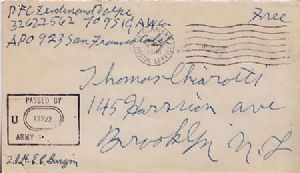 PFC Ferdinand Volpe
32622562
APO 923 San Francisco Calif
Free
Thomas Chiarotti
145 Harrison ave
Brooklyn N.Y
PASSED BY
U
ARMY
2d Lt. E.C. Burgin